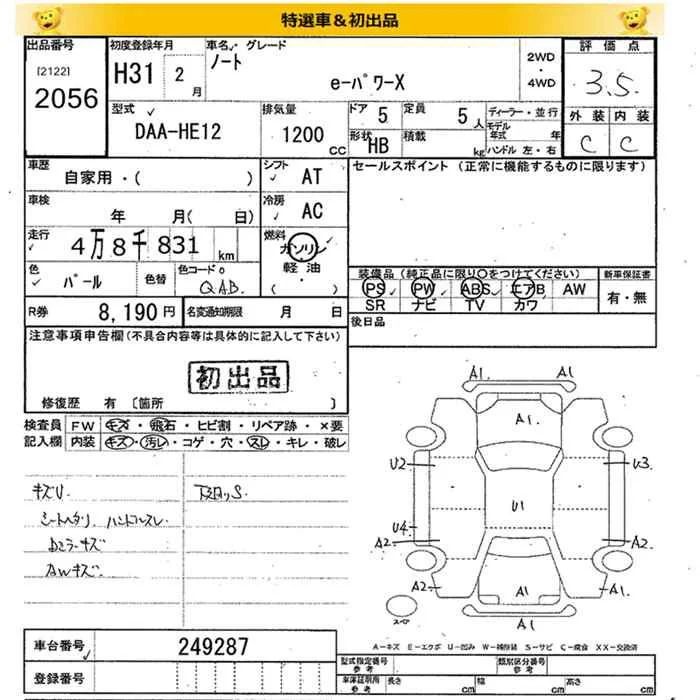 特選車＆初出品
出品番号 初度登録年月 車名・グレード 評価点
[2122]
2056
H31 2月
ノート
e-パワーX
2WD
・
4WD
3.5
型式 排気量 ドア 定員 ディーラー・並行 外装 内装
DAA-HE12 1200cc 5 5人
モデル年式 年
形状 HB 積載 kg ハンドル 左・右
C C
車歴 シフト セールスポイント (正常に機能するものに限ります)
自家用・( ) AT
車検 冷房
年 月( 日) AC
走行 燃料
4万8千831km ガソリン
軽油
( ・ )
色 パール 色替 色コードo QAB.
装備品 (純正品に限り○をつけてください) 新車保証書
PS PW ABS エアB AW 有・無
SR ナビ TV カワ
R券 8,190円 名変通知期限 月 日
後日品
注意事項申告欄(不具合内容等は具体的に記入して下さい)
初出品
修復歴 有 〔箇所 〕
検査員 FW キズ・飛石・ヒビ割・リペア跡・×要
記入欄 内装 キズ・汚レ・コゲ・穴・スレ・キレ・破レ
キズU.
シートヘタリ ハンドルスレ
AWキズ
下廻りS.
A1. A1
A1.
U2 U3
U1
U4
A2 A2
A2 A1.
A1
A1
スペア
A-キズ E-エクボ U-凹み W-補修跡 S-サビ C-腐食 XX-交換済
車台番号 249287
登録番号
型式指定番号 参考 類別区分番号 参考
車庫証明用 参考 長さ cm 幅 cm 高さ cm